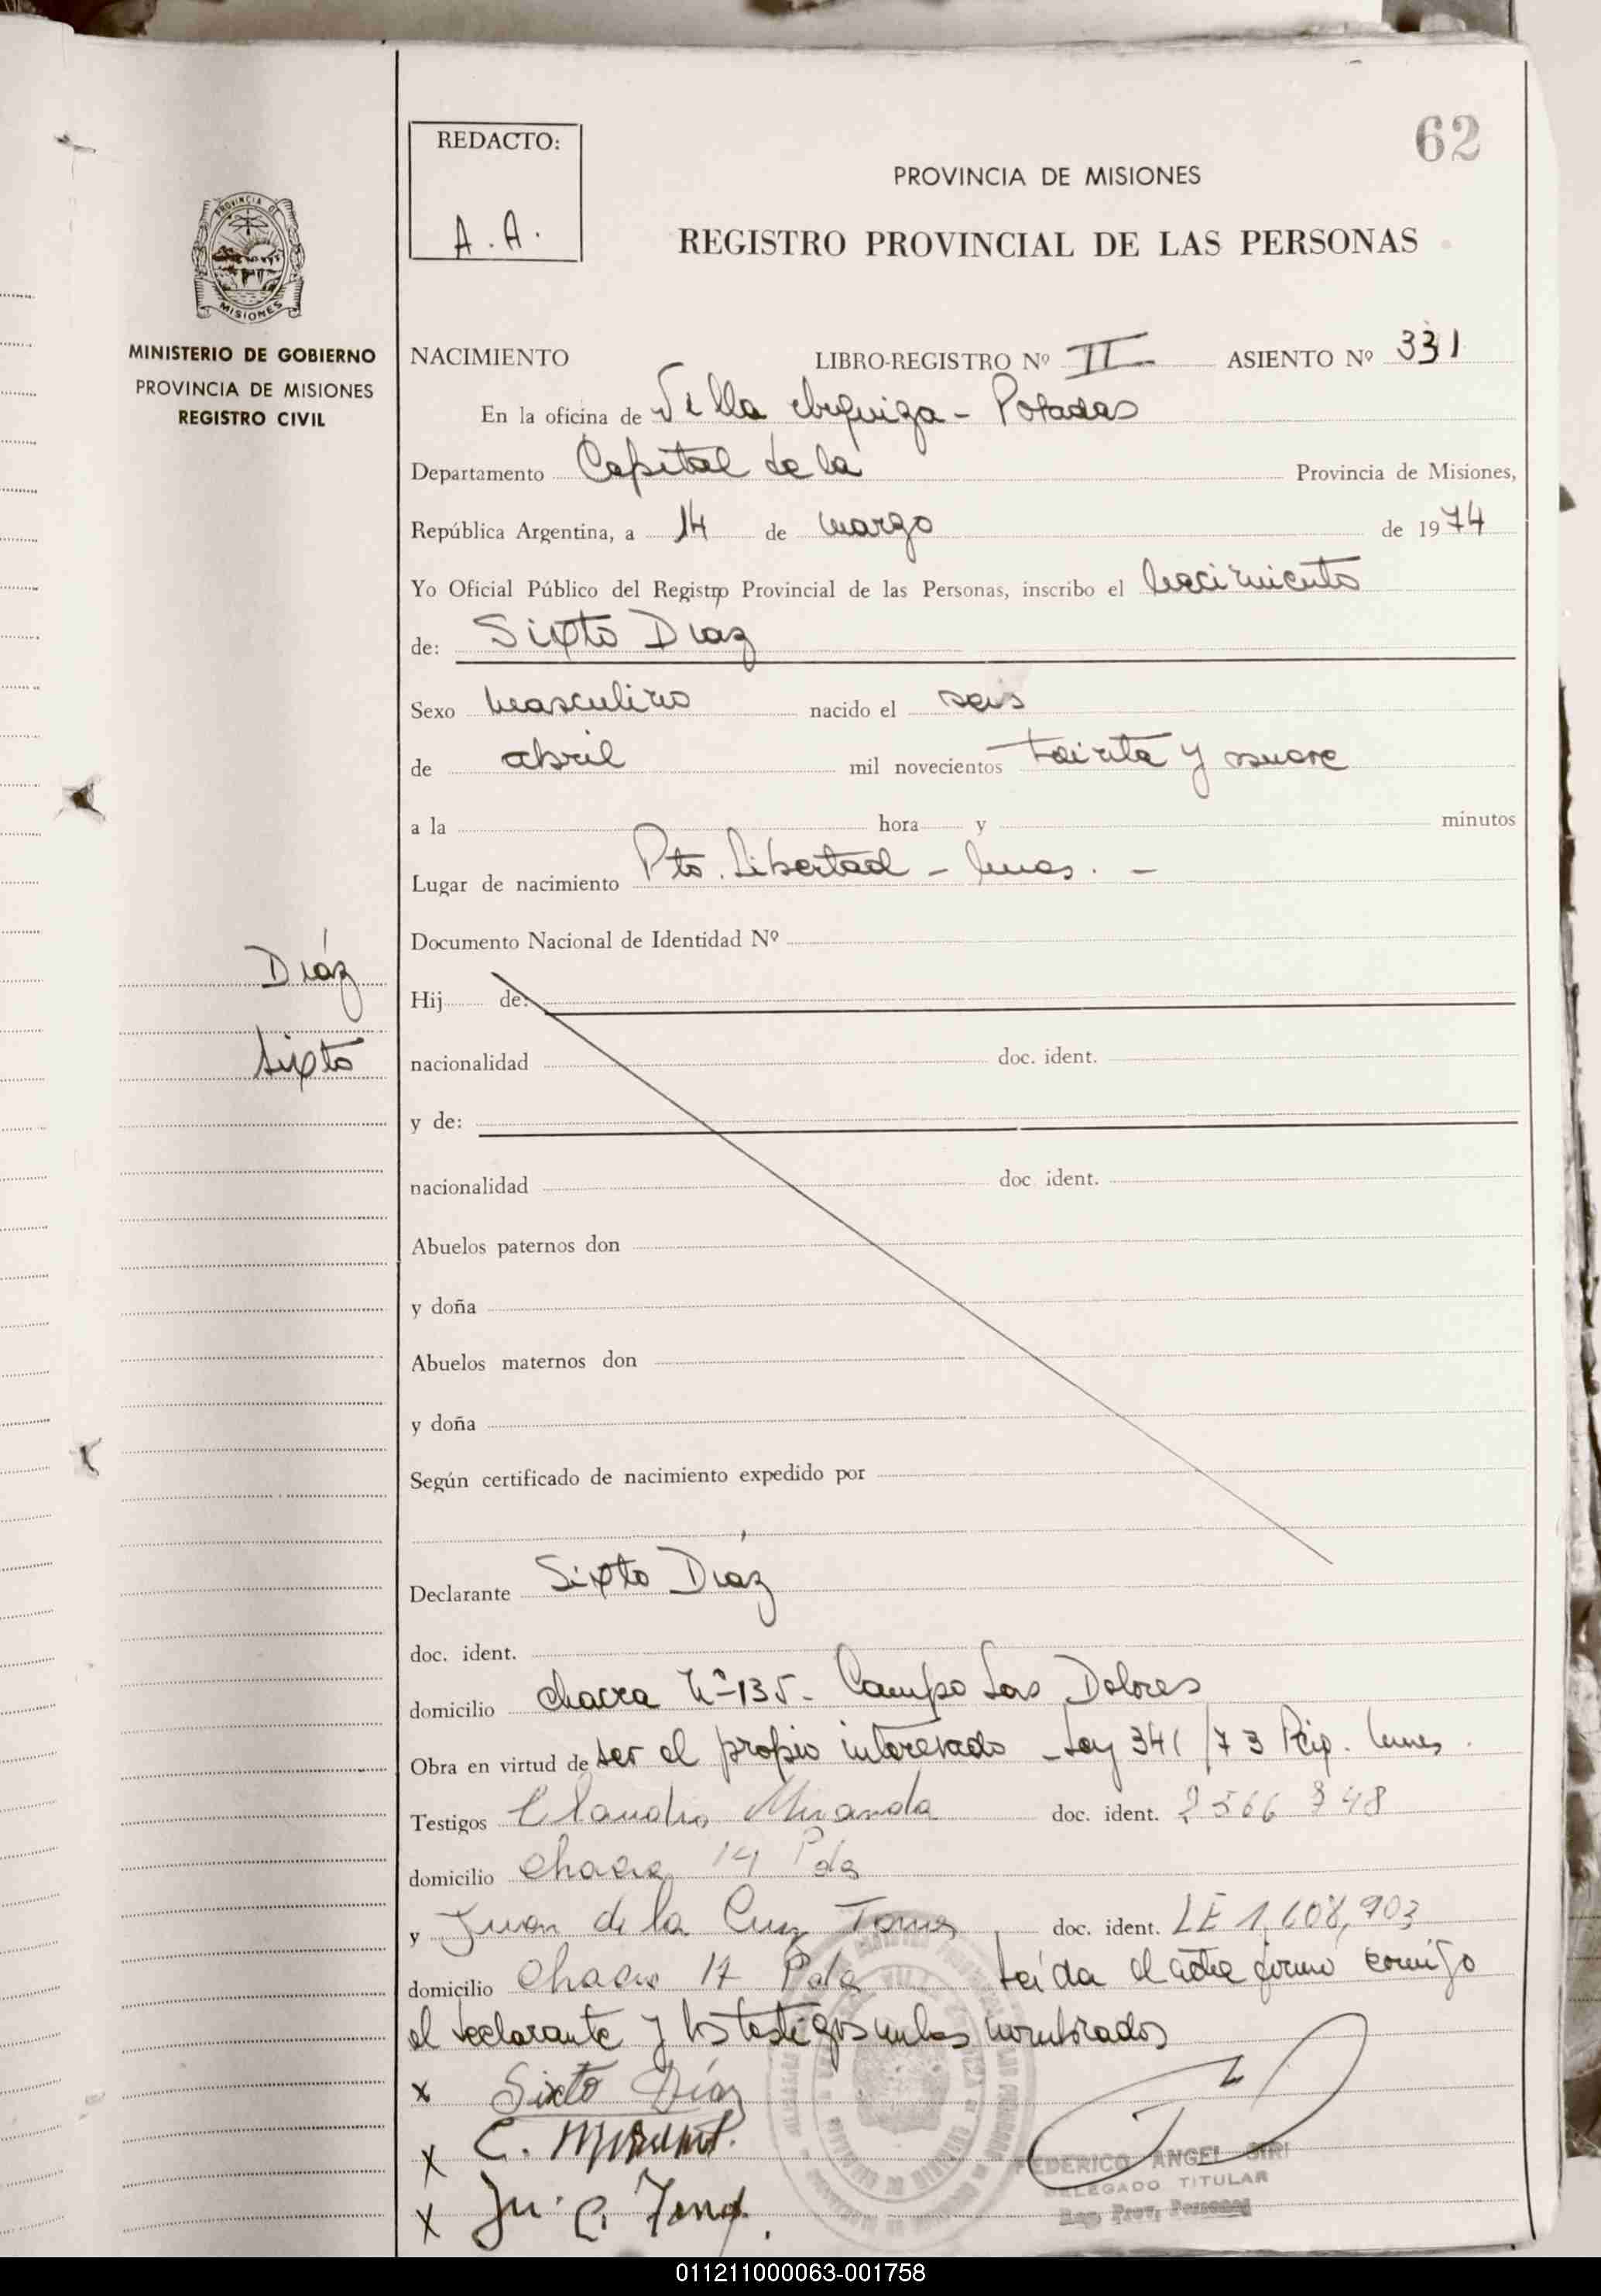 62
REDACTO:
A. A.
PROVINCIA DE MISIONES
REGISTRO PROVINCIAL DE LAS PERSONAS
PROVINCIA DE
MISIONES
MINISTERIO DE GOBIERNO
PROVINCIA DE MISIONES
REGISTRO CIVIL
NACIMIENTO LIBRO-REGISTRO Nº II ASIENTO Nº 331
En la oficina de Villa Urquiza - Posadas
Departamento Capital de la Provincia de Misiones,
República Argentina, a 14 de marzo de 1974
Yo Oficial Público del Registro Provincial de las Personas, inscribo el nacimiento
de: Sixto Diaz
Sexo masculino nacido el seis
de abril mil novecientos treinta y nueve
a la hora y minutos
Lugar de nacimiento Pto. Libertad - Mnes. -
Documento Nacional de Identidad Nº
Díaz
Sixto
Hij de:
nacionalidad doc. ident.
y de:
nacionalidad doc. ident.
Abuelos paternos don
y doña
Abuelos maternos don
y doña
Según certificado de nacimiento expedido por
Declarante Sixto Díaz
doc. ident.
domicilio chacra Nº 135 - Campo Las Dolores
Obra en virtud de ser el propio interesado - Ley 341/73 Mnes.
Testigos Claudio Miranda doc. ident. 2566
domicilio chacra 14 Pdas
y Juan de la Cruz doc. ident. LE 1,608,903
domicilio Chacra 17 Pdas Leída el acta firmó conmigo
el declarante y los testigos nombrados
x Sixto Díaz
x C. Miranda.
x Ju. C.
FEDERICO ANGEL SIRI
DELEGADO TITULAR
Reg. Prov. Personas
011211000063-001758